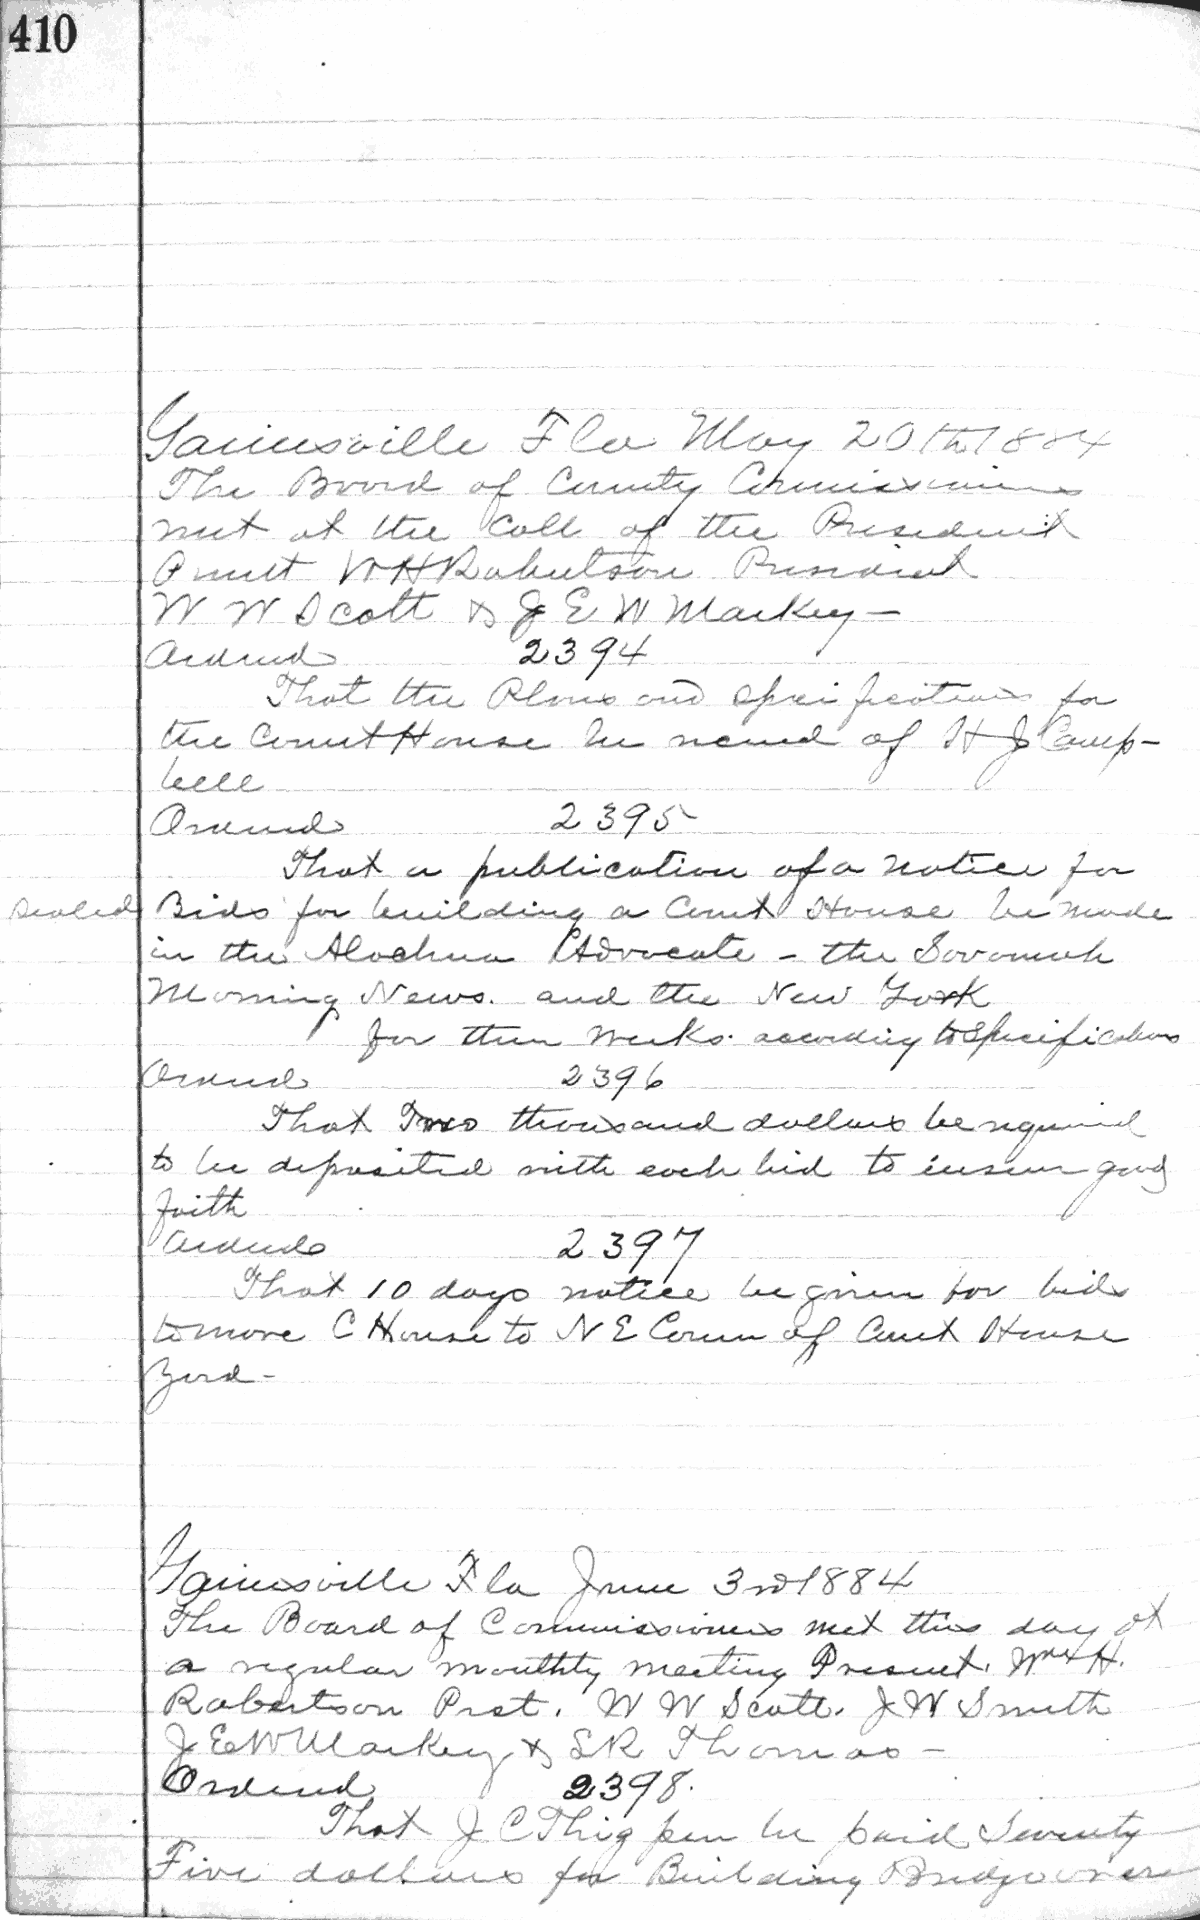 410
Gainesville Fla May 20th 1884
The Board of County Commissioners
met at the Call of the President
Present W H Robertson President
W W Scott & J E W Markey —
Ordered 2394
That the Plans and Specifications for
the Court House be received of H J Camp-
bell
Ordered 2395
That a publication of a notice for
sealed Bids for building a Court House be made
in the Alachua Advocate - the Savanah
Morning News. and the New York
for three weeks. according to Specifications
Ordered 2396
That Two thousand dollars be required
to be deposited with each bid to insure good
faith
Ordered 2397
That 10 days notice be given for bids
to move C House to N E Corner of Court House
Yard -
Gainesville Fla June 3rd 1884
The Board of Commissioners met this day at
a regular monthly meeting Present. Wm H.
Robertson Prst. W W Scott. J W Smith
J E W Markey & S R Thomas -
Ordered 2398.
That J C Thigpen be paid Seventy
Five dollars for Building Bridge over